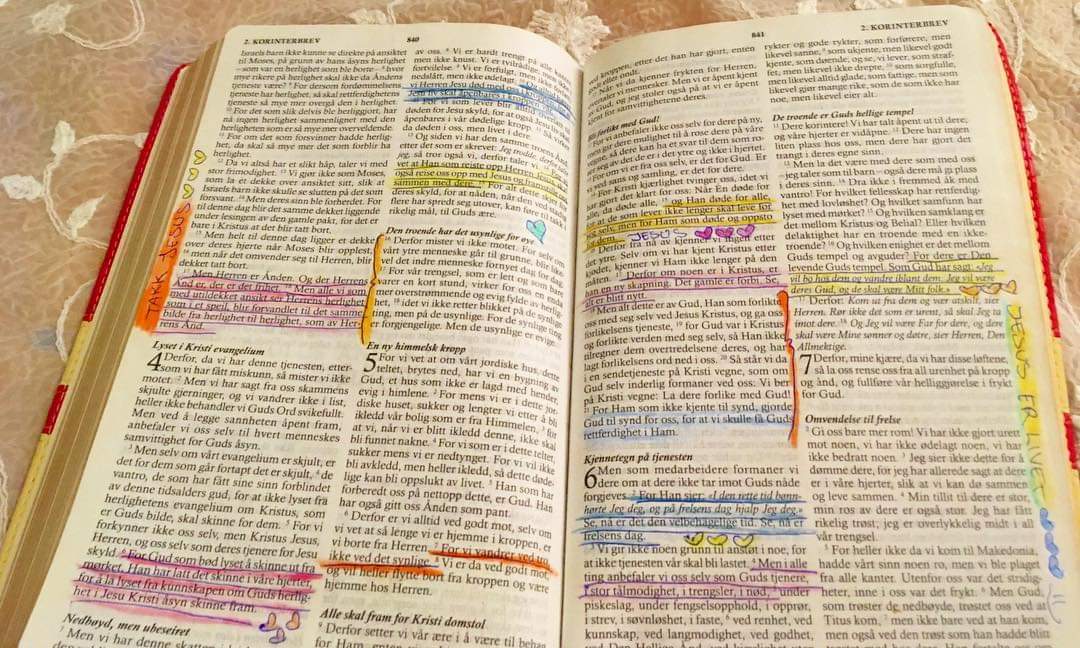 2. KORINTERBREV
840
Israels barn ikke kunne se direkte på ansiktet
til Moses, på grunn av hans åsyns herlighet
– som var en herlighet som ble borte –
mye rikere på herlighet skal ikke da Åndens
tjeneste være? ⁹ For dersom fordømmelsens
tjeneste har herlighet, så skal rettferdighetens
tjeneste så mye mer overgå den i herlighet.
¹⁰ For det som slik delvis ble herliggjort, har
nå ingen herlighet sammenlignet med den
herligheten som er så mye mer overveldende.
¹¹ For om det som forsvinner hadde herlig-
het, da skal så mye mer det som forblir ha
herlighet.
¹² Da vi altså har et slikt håp, taler vi med
stor frimodighet. ¹³ Vi gjør ikke som Moses,
som la et dekke over ansiktet sitt, slik at
Israels barn ikke skulle se slutten på det som
forsvant. ¹⁴ Men deres sinn ble forherdet. For
til denne dag blir det samme dekket liggende
under lesingen av den gamle pakt, for det er
bare i Kristus at det blir tatt bort.
¹⁵ Men helt til denne dag ligger et dekke
over deres hjerte når Moses blir opplest,
¹⁶ men når det omvender seg til Herren, blir
dekket tatt bort.
¹⁷ Men Herren er Ånden. Og der Herrens
Ånd er, der er det frihet. ¹⁸ Men alle vi som
med utildekket ansikt ser Herrens herlighet
som i et speil, blir forvandlet til det samme
bilde fra herlighet til herlighet, som av Her-
rens Ånd.
TAKK JESUS
Lyset i Kristi evangelium
4 Derfor, da vi har denne tjenesten, etter-
som vi har fått miskunn, så mister vi ikke
motet. ² Men vi har sagt fra oss skammens
skjulte gjerninger, og vi vandrer ikke i list,
heller ikke behandler vi Guds Ord svikefullt.
Men ved å legge sannheten åpent fram,
anbefaler vi oss selv til hvert menneskes
samvittighet for Guds åsyn.
³ Men selv om vårt evangelium er skjult, er
det for dem som går fortapt det er skjult, ⁴ de
vantro, de som har fått sine sinn forblindet
av denne tidsalders gud, for at ikke lyset fra
herlighetens evangelium om Kristus, som
er Guds bilde, skal skinne for dem. ⁵ For vi
forkynner ikke oss selv, men Kristus Jesus,
Herren, og oss selv som deres tjenere for Jesu
skyld. ⁶ For Gud som bød lyset å skinne ut fra
mørket, Han har latt det skinne i våre hjerter,
for å la lyset fra kunnskapen om Guds herlig-
het i Jesu Kristi åsyn skinne fram.
Nedbøyd, men ubeseiret
⁷ Men vi har denne skatten
av oss. ⁸ Vi er hardt trengt på alle kanter,
men ikke knust. Vi er tvilrådige, men
fortvilelse. ⁹ Vi er forfulgt, men ikke
nedslått, men ikke ødelagt.
vi Herren Jesu død med
Jesu liv skal åpenbares i kroppen
For vi som lever blir alltid
døden for Jesu skyld, for at også Jesu liv skal
åpenbares i vår dødelige kropp. ¹² Så virker
da døden i oss, men livet i dere.
¹³ Og siden vi har den samme troens Ånd,
etter det som er skrevet: Jeg trodde, derfor
jeg, så tror også vi, derfor taler vi
vet at Han som reiste opp Herren Jesus,
også reise oss opp med Jesus og framstille oss
sammen med dere. ¹⁵ For alt dette skjer for
deres skyld, for at nåden, når den ved
flere har spredt seg utover, kan føre til
rikelig mål, til Guds ære.
Den troende har det usynlige for øye
¹⁶ Derfor mister vi ikke motet. For selv om
vårt ytre menneske går til grunne, blir like-
vel det indre mennesket fornyet dag for dag.
¹⁷ For vår trengsel, som er lett og som bare
varer en kort stund, virker for oss en enda
mer overstrømmende og evig fylde av herlig-
het, ¹⁸ idet vi ikke retter blikket på de synlige
ting, men på de usynlige. For de synlige ting
er forgjengelige. Men de usynlige er evige.
En ny himmelsk kropp
5 For vi vet at om vårt jordiske hus, dette
teltet, brytes ned, har vi en bygning av
Gud, et hus som ikke er lagd med hender,
evig i himlene. ² For mens vi er i dette jor-
diske huset, sukker og lengter vi etter å bli
ikledd vår bolig som er fra Himmelen, ³ for
at vi, når vi er blitt ikledd denne, ikke skal
bli funnet nakne. ⁴ For vi som er i dette teltet,
sukker mens vi er nedtynget. For vi vil ikke
bli avkledd, men heller ikledd, så dette døde-
lige kan bli oppslukt av livet. ⁵ Han som har
forberedt oss på nettopp dette, er Gud. Han
har også gitt oss Ånden som pant.
⁶ Derfor er vi alltid ved godt mot, selv om
vi vet at så lenge vi er hjemme i kroppen, er
vi borte fra Herren. ⁷ For vi vandrer ved tro,
ikke ved det synlige. ⁸ Vi er da ved godt mot,
og vil heller flytte bort fra kroppen og være
hjemme hos Herren.
Alle skal fram for Kristi domstol
⁹ Derfor setter vi vår ære i å være til behag
841
2. KORINTERBREV
ved kroppen, etter det han har gjort, enten
godt eller ondt.
¹¹ Når vi da kjenner frykten for Herren,
overtaler vi mennesker. Men vi er åpent kjent
for Gud, og jeg stoler også på at vi er åpent
kjent for samvittighetene deres.
Bli forlikt med Gud!
¹² For vi anbefaler ikke oss selv for dere på ny,
men gir dere mulighet til å rose dere på våre
vegne, så dere kan ha et svar til dem som ro-
ser seg av det de er i det ytre og ikke i hjertet.
¹³ For om vi er fra oss selv, er det for Gud. Er
vi ved sans og samling, er det for dere.
¹⁴ For Kristi kjærlighet tvinger oss, idet vi
har gjort det klart for oss: Når Én døde for
alle, da døde alle, ¹⁵ og Han døde for alle,
for at de som lever ikke lenger skal leve for
seg selv, men for Ham som døde og oppsto
for dem. JESUS
¹⁶ Derfor, fra nå av kjenner vi ingen etter
det ytre. Selv om vi har kjent Kristus etter
kjødet, kjenner vi Ham ikke lenger på den
måten. ¹⁷ Derfor om noen er i Kristus, er
han en ny skapning. Det gamle er forbi. Se,
alt er blitt nytt.
¹⁸ Men alt dette er av Gud, Han som forlikte
oss med seg selv ved Jesus Kristus, og ga oss
forlikelsens tjeneste, ¹⁹ for Gud var i Kristus
og forlikte verden med seg selv, så Han ikke
tilregner dem overtredelsene deres, og har
lagt forlikelsens ord ned i oss. ²⁰ Så står vi da
i en sendetjeneste på Kristi vegne, som om
Gud selv inderlig formaner ved oss: Vi ber
på Kristi vegne: La dere forlike med Gud!
²¹ For Ham som ikke kjente til synd, gjorde
Gud til synd for oss, for at vi skulle få Guds
rettferdighet i Ham.
Kjennetegn på tjenesten
6 Men som medarbeidere formaner vi
dere om at dere ikke tar imot Guds nåde
forgjeves. ² For Han sier: «I den rette tid bønn-
hørte Jeg deg, og på frelsens dag hjalp Jeg deg.»
Se, nå er det den velbehagelige tid. Se, nå er
frelsens dag.
³ Vi gir ikke noen grunn til anstøt i noe, for
at ikke tjenesten vår skal bli lastet. ⁴ Men i alle
ting anbefaler vi oss selv som Guds tjenere,
i stor tålmodighet, i trengsler, i nød, ⁵ under
piskeslag, under fengselsopphold, i opprør,
i strev, i søvnløshet, i faste, ⁶ ved renhet, ved
kunnskap, ved langmodighet, ved godhet,
ved Den Hellige Ånd, ved kjærlighet uten
rykter og gode rykter, som forførere, men
likevel sanne, ⁹ som ukjente, men likevel godt
kjente, som døende, og se, vi lever, som straf-
fet, men likevel ikke drepte, ¹⁰ som sorgfulle,
men likevel alltid glade, som fattige, men som
likevel gjør mange rike, som de som ikke har
noe, men likevel eier alt.
De troende er Guds hellige tempel
¹¹ Dere korintere! Vi har talt åpent ut til dere,
og våre hjerter er vidåpne. ¹² Dere har ingen
liten plass hos oss, men dere har gjort det
trangt i deres egne sinn.
¹³ Men la det være med dere som med oss
– jeg taler som til barn – også dere må gi plass
i deres sinn. ¹⁴ Dra ikke i fremmed åk med
vantro! For hvilket fellesskap har rettferdig-
het med lovløshet? Og hvilket samfunn har
lyset med mørket? ¹⁵ Og hvilken samklang er
det mellom Kristus og Belial? Eller hvilken
delaktighet har en troende med en ikke-
troende? ¹⁶ Og hvilken enighet er det mellom
Guds tempel og avguder? For dere er Den
levende Guds tempel. Som Gud har sagt: «Jeg
vil bo hos dem og vandre iblant dem. Jeg vil være
deres Gud, og de skal være Mitt folk.»
¹⁷ Derfor: Kom ut fra dem og vær atskilt, sier
Herren. Rør ikke det som er urent, så skal Jeg ta
imot dere. ¹⁸ Og Jeg vil være Far for dere, og dere
skal være Mine sønner og døtre, sier Herren, Den
Allmektige.
7 Derfor, mine kjære, da vi har disse løftene,
så la oss rense oss fra all urenhet på kropp
og ånd, og fullføre vår helliggjørelse i frykt
for Gud.
Omvendelse til frelse
² Gi oss bare mer rom! Vi har ikke gjort urett
mot noen, vi har ikke ødelagt noen, vi har
ikke bedratt noen. ³ Jeg sier ikke dette for å
dømme dere, for jeg har allerede sagt at dere
er i våre hjerter, slik at vi kan dø sammen
og leve sammen. ⁴ Min tillit til dere er stor,
min ros av dere er også stor. Jeg har fått
rikelig trøst; jeg er overlykkelig midt i all
vår trengsel.
⁵ For heller ikke da vi kom til Makedonia,
hadde vårt sinn noen ro, men vi ble plaget
fra alle kanter. Utenfor oss var det stridig-
heter, inne i oss var det frykt. ⁶ Men Gud,
som trøster de nedbøyde, trøstet oss ved at
Titus kom, ⁷ men ikke bare ved at han kom,
men også ved den trøst som han hadde blitt
JESUS ER LIVET